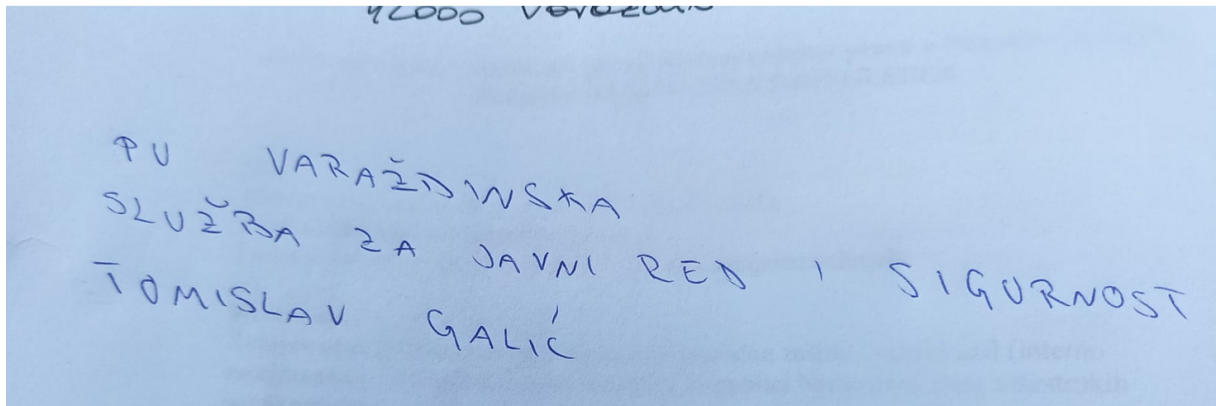 42000 Varaždin
PU VARAŽDINSKA
SLUŽBA ZA JAVNI RED I SIGURNOST
TOMISLAV GALIĆ